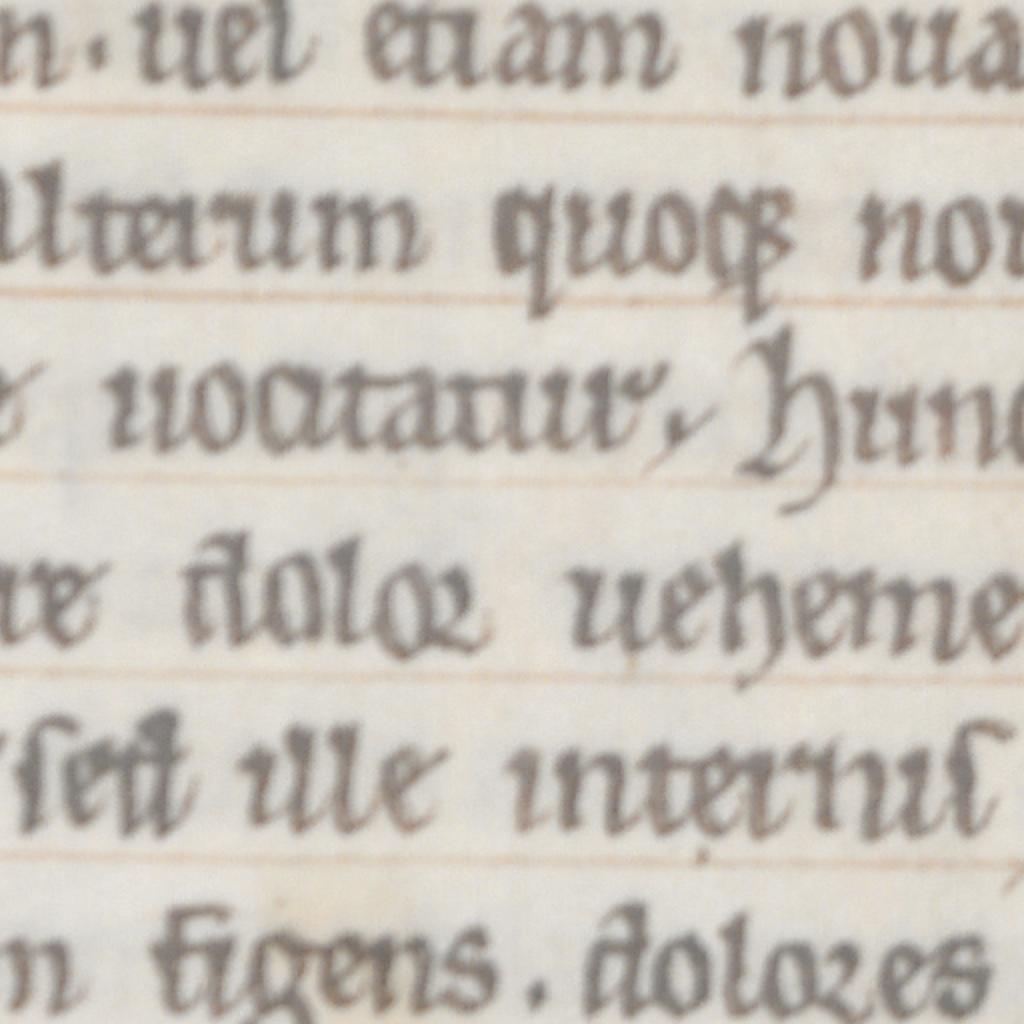 n. uel etiam noua
Alterum quoqꝫ nou
uocitatur, hunc
re dolor ueheme
sed ille internus
n figens. dolores